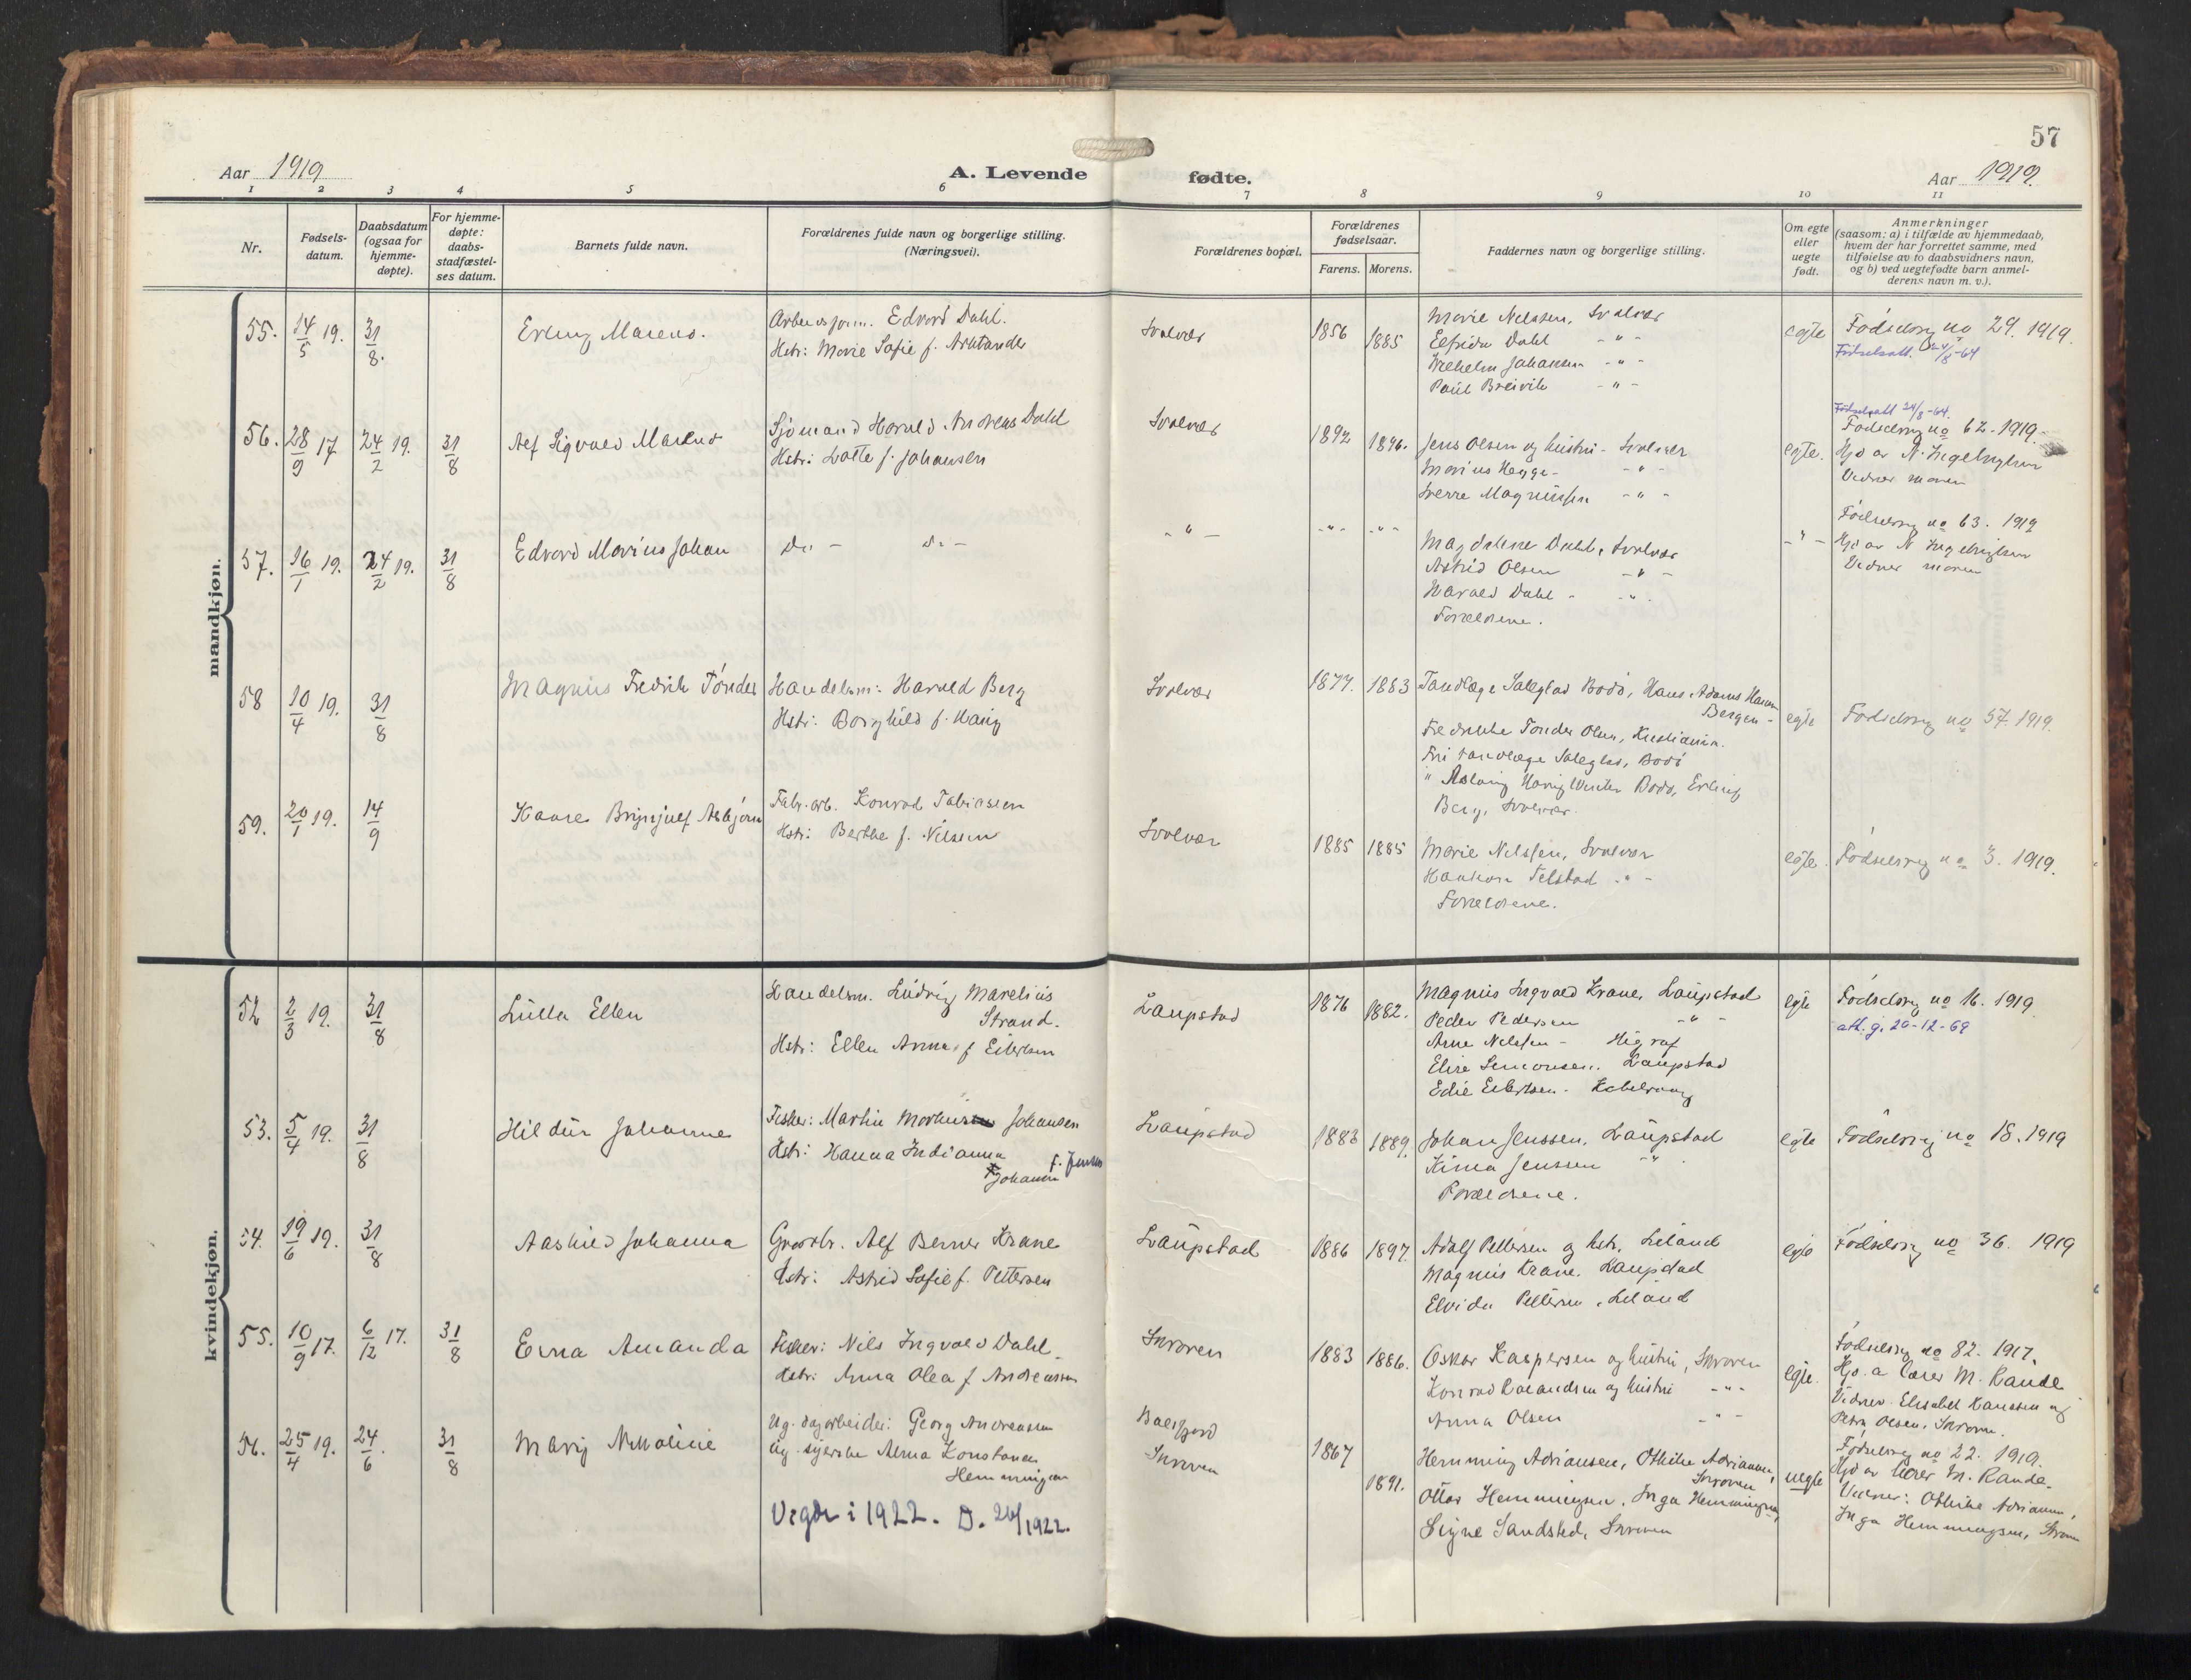 57
Aar 1919
A. Levende fødte.
Aar 1919.
1 2 3 4 5 6 7 8 9 10 11
Nr.
Fødsels-
datum.
Daabsdatum
(ogsaa for
hjemme-
døpte).
For hjemme-
døpte:
daabs-
stadfæstel-
ses datum.
Barnets fulde navn.
Forældrenes fulde navn og borgerlige stilling.
(Næringsvei).
Forældrenes bopæl.
Forældrenes
fødselsaar.
Farens. Morens.
Faddernes navn og borgerlige stilling.
Om egte
eller
uegte
født.
Anmerkninger
(saasom: a) i tilfælde av hjemmedaab,
hvem der har forrettet samme, med
tilføielse av to daabsvidners navn,
og b) ved uegtefødte barn anmel-
derens navn m. v.).
mandkjøn.
55. 14/5 19. 31/8. Erling Marens.
Edvard Dahl.
Hstr: Marie Sofie f.
Svolvær
1856 1885
Marie Nelssen, Svolvær
Elfrida Dahl - " -
Wilhelm Johansen - " -
Paul Breivik - " -
egte
Fødselsreg no 29. 1919.
Fødselsatt. 24/8-64
56. 28/9 17 24/2 19. 31/8 Alf Sigvald
Sjømand Harald Andreas Dahl
Hstr: Lotte f. Johansen
Svolvær
1892 1896.
Jens Olsen og hustru - Svolvær
Marius Hegge - - " -
Sverre Magnussen - " -
egte.
Fødselsatt 24/8-64.
Fødselsreg no 62. 1919.
Hjd av N. Ingebrigtsen
Vidner moren
57. 16/1 19. 24/2 19. 31/8 Edvard Marius Johan
Do - Do -
- " -
- " - - " -
Magdalene Dahl, Svolvær
Astrid Olsen - " -
Harald Dahl - - " -
Forældrene.
- " -
Fødselsreg no 63. 1919
Hjd av N Ingebrigtsen
Vidner moren
58 10/4 19. 31/8 Magnus Fredrik Tønder
Handelsm: Harald Berg
Hstr: Borghild f. Harig
Svolvær
1877. 1883
Tandlæge Bodø, Hans Adams Hansen
Bergen -
Fredrikke Tønder Olsen, Kristiania.
Fru tandlæge Bodø
" Aslaug Harig Winter Bodø, Erling
Berg, Svolvær.
egte
Fødselsreg no 57. 1919.
59. 20/1 19. 14/9 Kaare Brynjulf Asbjørn
Fabr. arb. Konrad Tobiassen
Hstr: Berthe f. Nilsen
Svolvær
1885 1885
Marie Nelssen, Svolvær
Telstad - " -
Forældrene.
egte.
Fødselsreg no 3. 1919.
kvindekjøn.
52 2/3 19. 31/8 Lulla Ellen
Handelsm. Ludvig Marelius
Strand.
Hstr: Ellen Anna f Eilertsen
Laupstad
1876 1882.
Magnus Ingvald Krane, Laupstad
Peder Pedersen - " -
Arne Nelssen - Higrav
Elise Simonsen. Laupstad
Edie Eilertsen - Kabelvaag
egte
Fødselsreg no 16. 1919.
att. g. 20-12-69
53. 5/4 19. 31/8 Hildur Johanne
Fisker: Martin Johansen
Hstr: Hanna Indianna
f. Jensen
Johansen
Laupstad
1883 1889.
Johan Jenssen, Laupstad
Kina Jenssen - " -
Forældrene.
egte
Fødselsreg no 18. 1919
54. 19/6 19. 31/8 Aashild Johanna
Alf Berner Krane
Hstr: Astrid Sofie f. Pettersen
Laupstad
1886 1897.
Adolf Pettersen og hstr, Liland
Magnus Krane. Laupstad
Elvida Pettersen, Liland
egte
Fødselsreg no 36. 1919
55. 10/9 17. 6/12 17. 31/8 Erna Amanda
Fisker: Nils Ingvald Dahl
Hstr: Anna Olea f Andreassen
Skroven
1883 1886.
Oskar Kaspersen og hustru, Skroven
Konrad Rolandsen og hustru - " -
Anna Olsen - " -
egte.
Fødselsreg no 82. 1917.
Hjd. a lærer M. Rande
Vidner: Elisabet Hanssen og
Petra Olsen, Skroven.
56. 25/4 19. 24/6 31/8 Mary
Ug. dagarbeider: Georg Andreassen
Ug. syerske Alma Konstanse
Hemmingsen
Balsfjord
Skroven
1867
1891.
Hemming Adriansen, Othilie Adriansen,
Skroven
Ottar Hemmingsen, Inga Hemmingsen,
Signe Sandsted, Skroven
uegte
Fødselsreg no 22. 1919.
Hjd av lærer M. Rande.
Vidner: Othilie Adriansen,
Inga Hemmingsen, Skroven
i 1922. D. 26/1922.